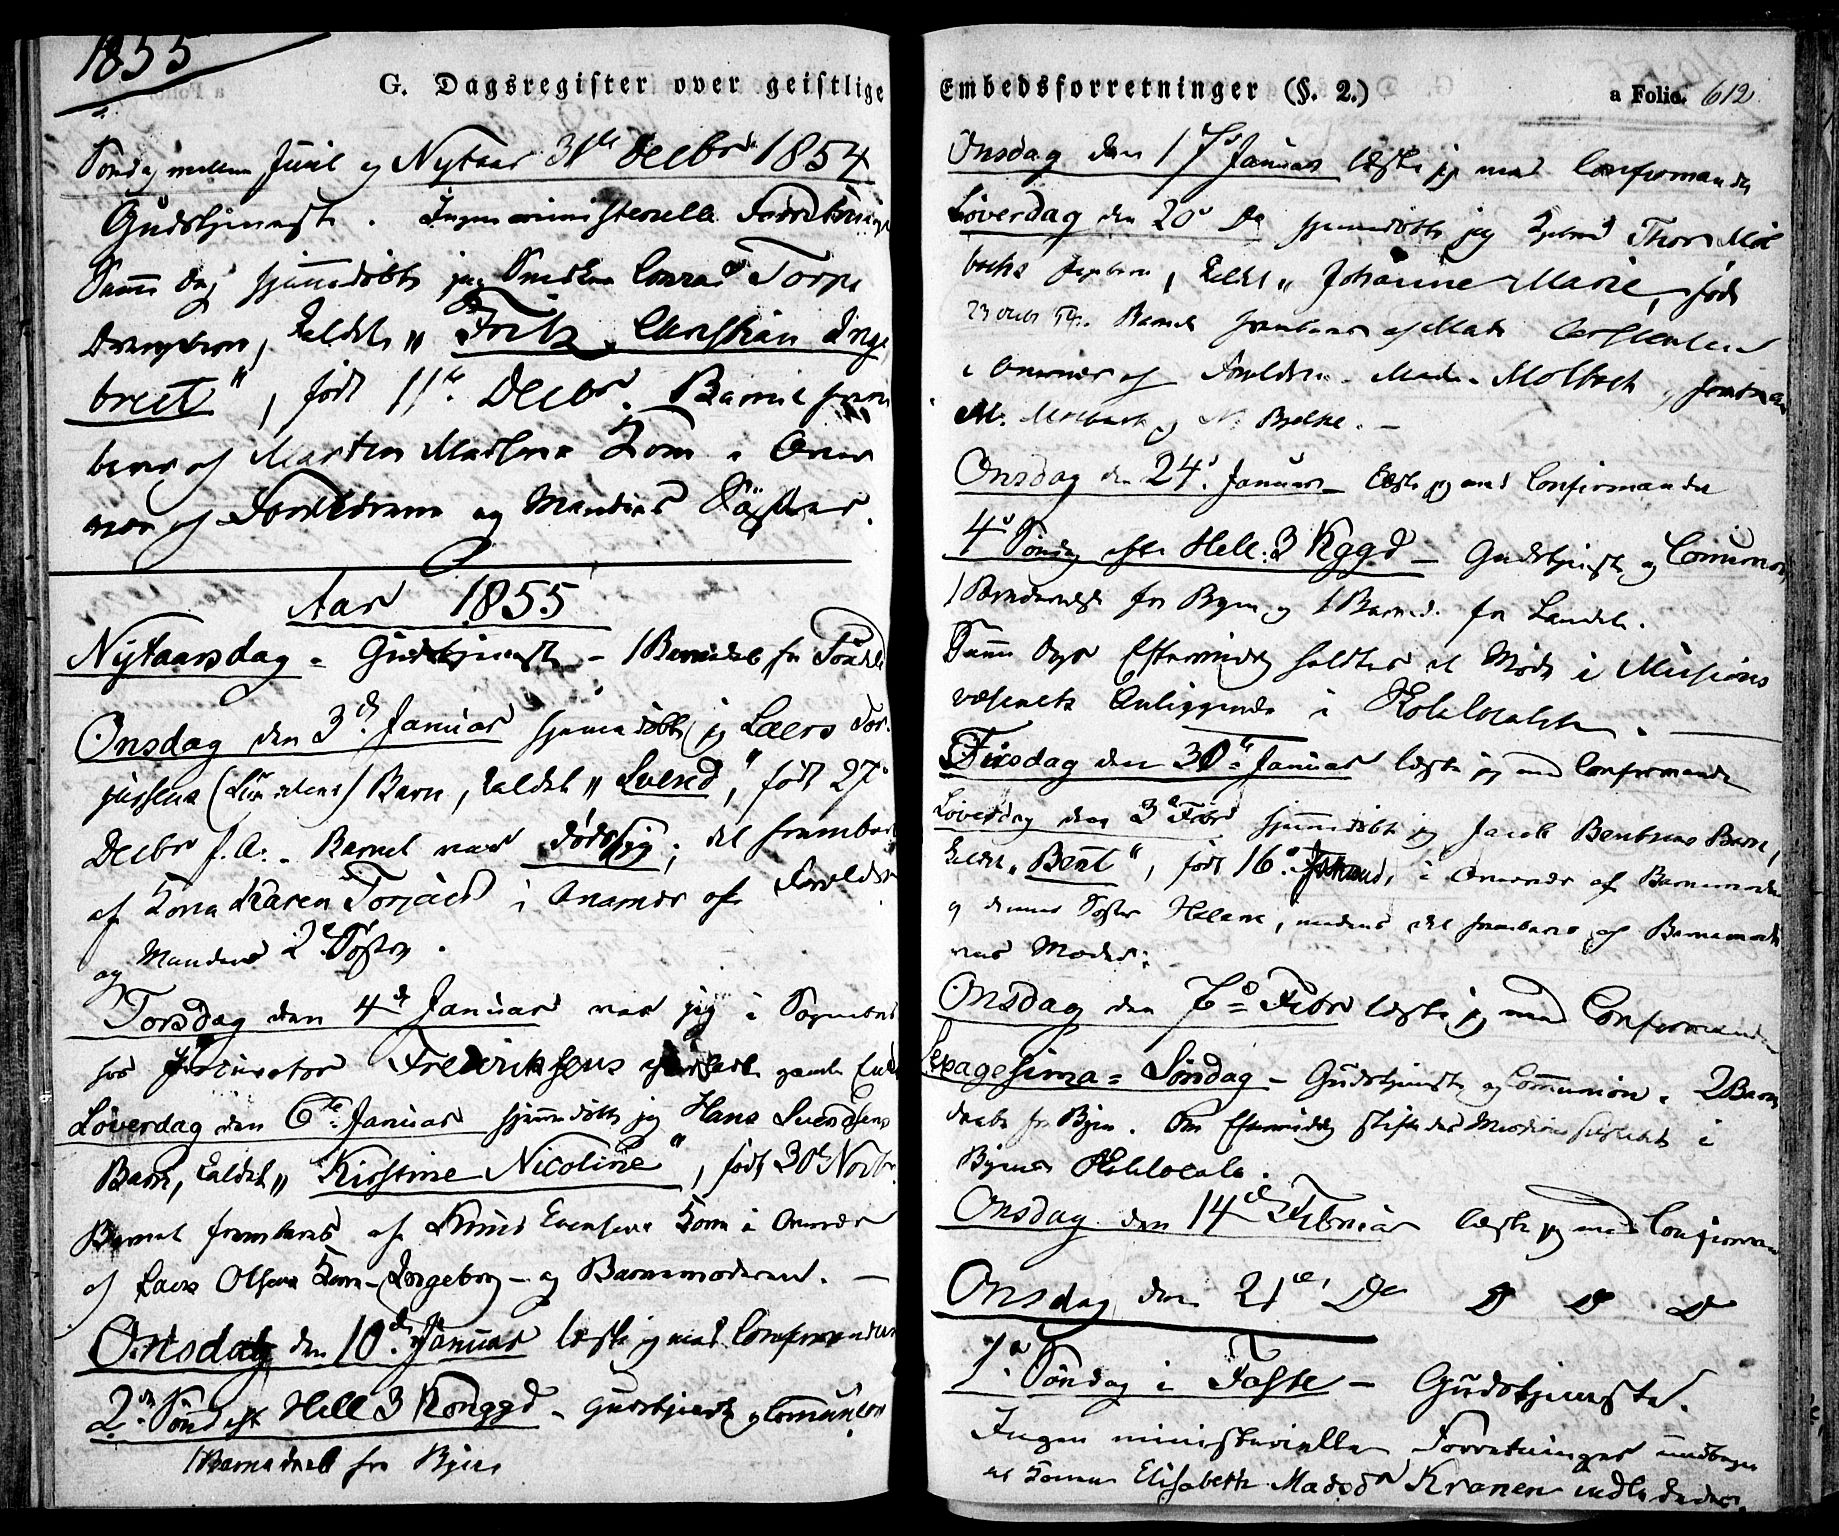 1855
G. Dagsregister over geistlige
Søndag mellem Juul og Nytaar 31te Decbr 1854
Gudstjeneste. Ingen ministerielle Forretninger
Samme Dag hjemmedøbte jeg Conrad Torps
Drengebarn, kaldet „Fritz Christian Inge
bret", født 11te Decbr. Barnet frem
baaret af Morten Madsens Kone i Overvær
af Forældrene og Mandens Søster.
Aar 1855
Nytaarsdag - Gudstjeneste - 1 Barnedaab fra
Onsdag den 3d Januar hjemmedøbte jeg Laers Tor
jussens Barn, kaldet „Svend", født 27
Decbr f. A. - Barnet var dødssyg; det frembares
af Kona Karen i Overvær af Forældrene
og Mandens 2 Søstre.
Torsdag den 4d Januar var jeg i Sognebud
hos Procurator Frederiksens gamle
Løverdag den 6te Januar hjemmedøbte jeg Hans Svendsens
Barn, kaldet „Kirstine Nicoline", født 30 Novbr.
Barnet frembares af Knud Evensens Kone i Overvær
af Lars Olsens Kone - Ingeborg - og Barnemoderen. -
Onsdag den 10de Januar læste jeg med Confirmanderne
2den Sønd. eft Hell 3 Konggd - Gudstjeneste og Comunion
1 Barnedaab fra Byen
Embedsforretninger (§. 2.)
a Folio. 612
Onsdag den 17d Januar læste jeg med Confirmander
Løverdag den 20d Do hjemmedøbte jeg Thor Mol
bachs Pigebarn, kaldet „Johanne Marie, født
23 Octbr 54. Barnet frembares af Mads Carstensens
i Overvær af Forældrene. Mads Molbech, Jomfru
M. Molbach og N. Bjelke. -
Onsdag den 24d. Januar - læste jeg med Confirmander
4d Søndag efter Hell. 3 Kggd - Gudstjeneste og Comunion
1 Barnedaab fra Byen og 1 Barned. fra Landet.
Samme Dags Eftermiddag holdtes et Møde i Missions
væsenets Anliggende i Skolelocalet.
Tirsdag den 30te Januar læste jeg med Confirmander
Løverdag den 3d Febr hjemmedøbte jeg Jacob Bentsens Barn,
kaldet „Bent", født 16. i Overvær af Barnemoderen
og dennes Søster Helene, medens det frembares af Barnemode
rens Moder.
Onsdag den 7d Febr læste jeg med Confirmander
Sexagesima = Søndag - Gudstjeneste og Communion. 2 Barne
daabe fra Byen. Om Eftermiddag stiftedes Missionsselskabet i
Byens Skolelocale.
Onsdag den 14de Februar læste jeg med Confirman
Onsdag den 21de Do D D D
1d Søndag i Faste - Gudstjeneste.
Ingen ministerielle Forretninger undtagen
at Konen Elisabeth Madsd Kranen indlededes.